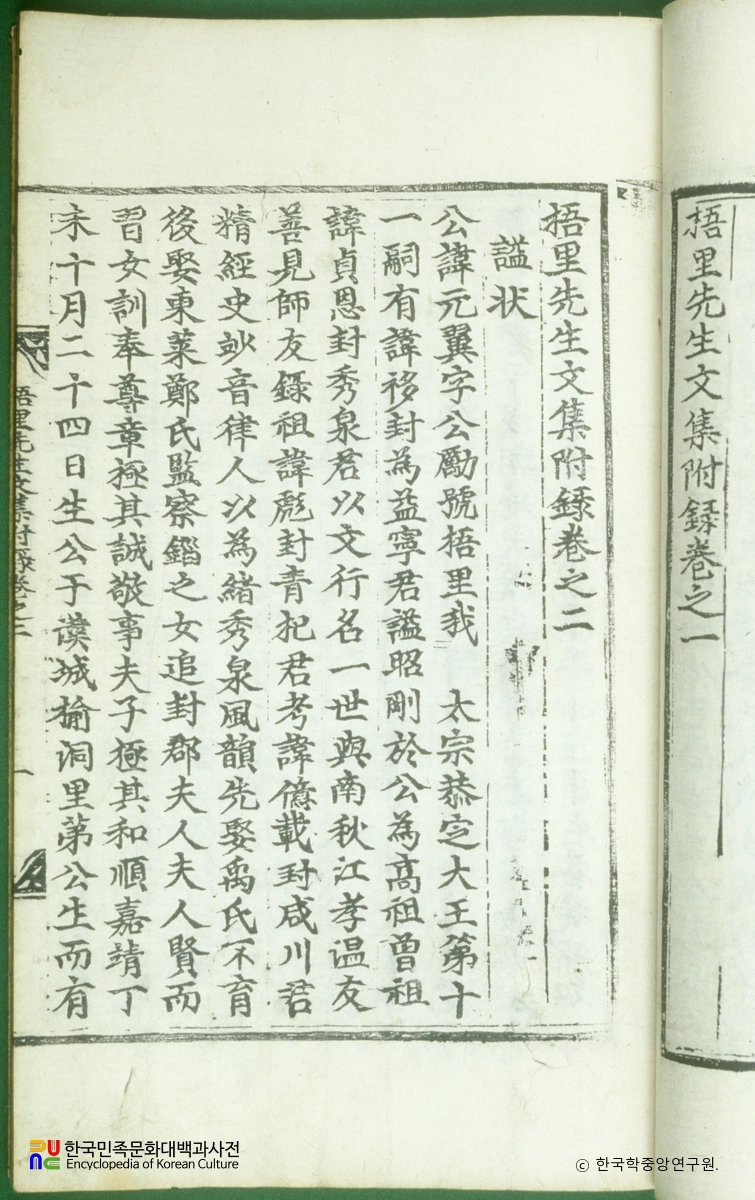 梧里先生文集附錄卷之一
梧里先生文集附錄卷之二
諡狀
公諱元翼字公勵號梧里我 太宗恭定大王第十
一嗣有諱袳封為益寧君諡昭剛於公為高祖曾祖
諱貞恩封秀泉君以文行名一世與南秋江孝温友
善見師友錄祖諱彪封青杞君考諱億載封咸川君
精經史妙音律人以為緒秀泉風韻先娶禹氏不育
後娶東萊鄭氏監察鎦之女追封郡夫人夫人賢而
習女訓奉尊章極其誠敬事夫子極其和順嘉靖丁
未十月二十四日生公于漢城楡洞里第公生而有
梧里先生文集附錄卷之二
一
한국민족문화대백과사전
Encyclopedia of Korean Culture
ⓒ 한국학중앙연구원.